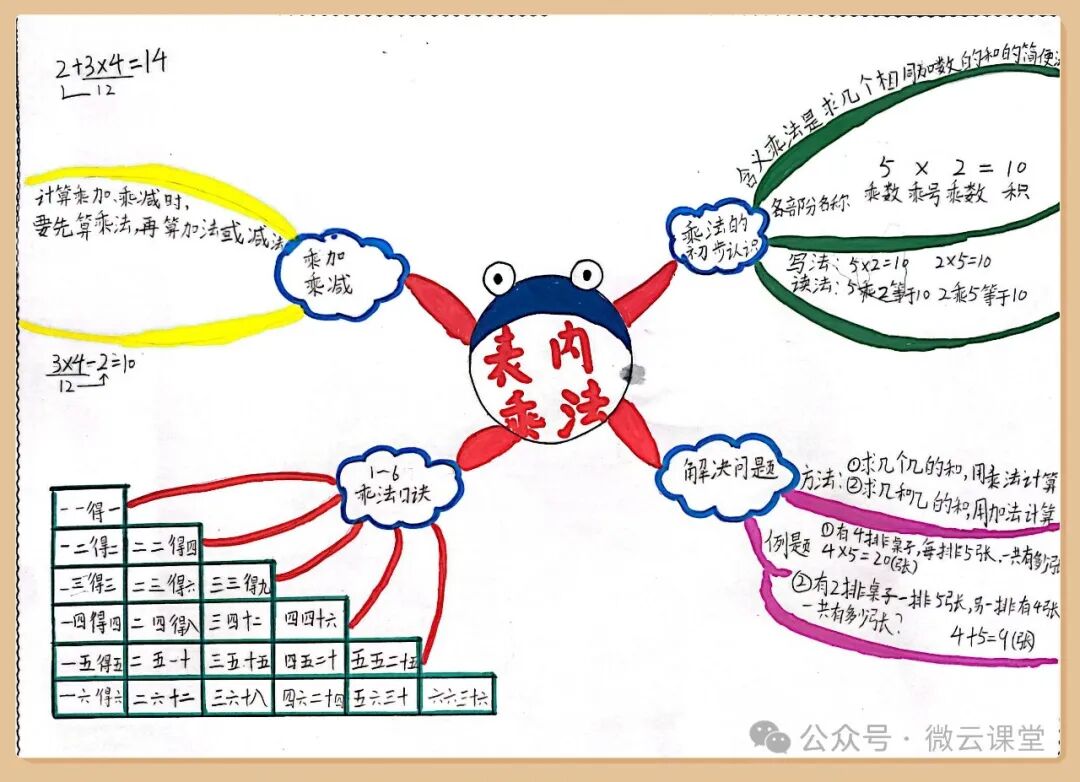 2+3×4=14
12
计算乘加、乘减时，
要先算乘法，再算加法或减法
乘加
乘减
3×4-2=10
12
表内
乘法
含义 乘法是求几个相同加数的和的简便
乘法的
初步认识
各部分名称
5 × 2 = 10
乘数 乘号 乘数 积
写法：5×2=10 2×5=10
读法：5乘2等于10 2乘5等于10
1-6
乘法口诀
一一得一
一二得二 二二得四
一三得三 二三得六 三三得九
一四得四 二四得八 三四十二 四四十六
一五得五 二五一十 三五十五 四五二十 五五二十五
一六得六 二六十二 三六十八 四六二十四 五六三十 六六三十六
解决问题
方法：①求几个几的和，用乘法计算
②求几和几的和，用加法计算
例题 ①有4排桌子，每排5张，一共有多少张
4×5=20(张)
②有2排桌子一排5张，另一排有4张
一共有多少张？
4+5=9(张)
公众号·微云课堂